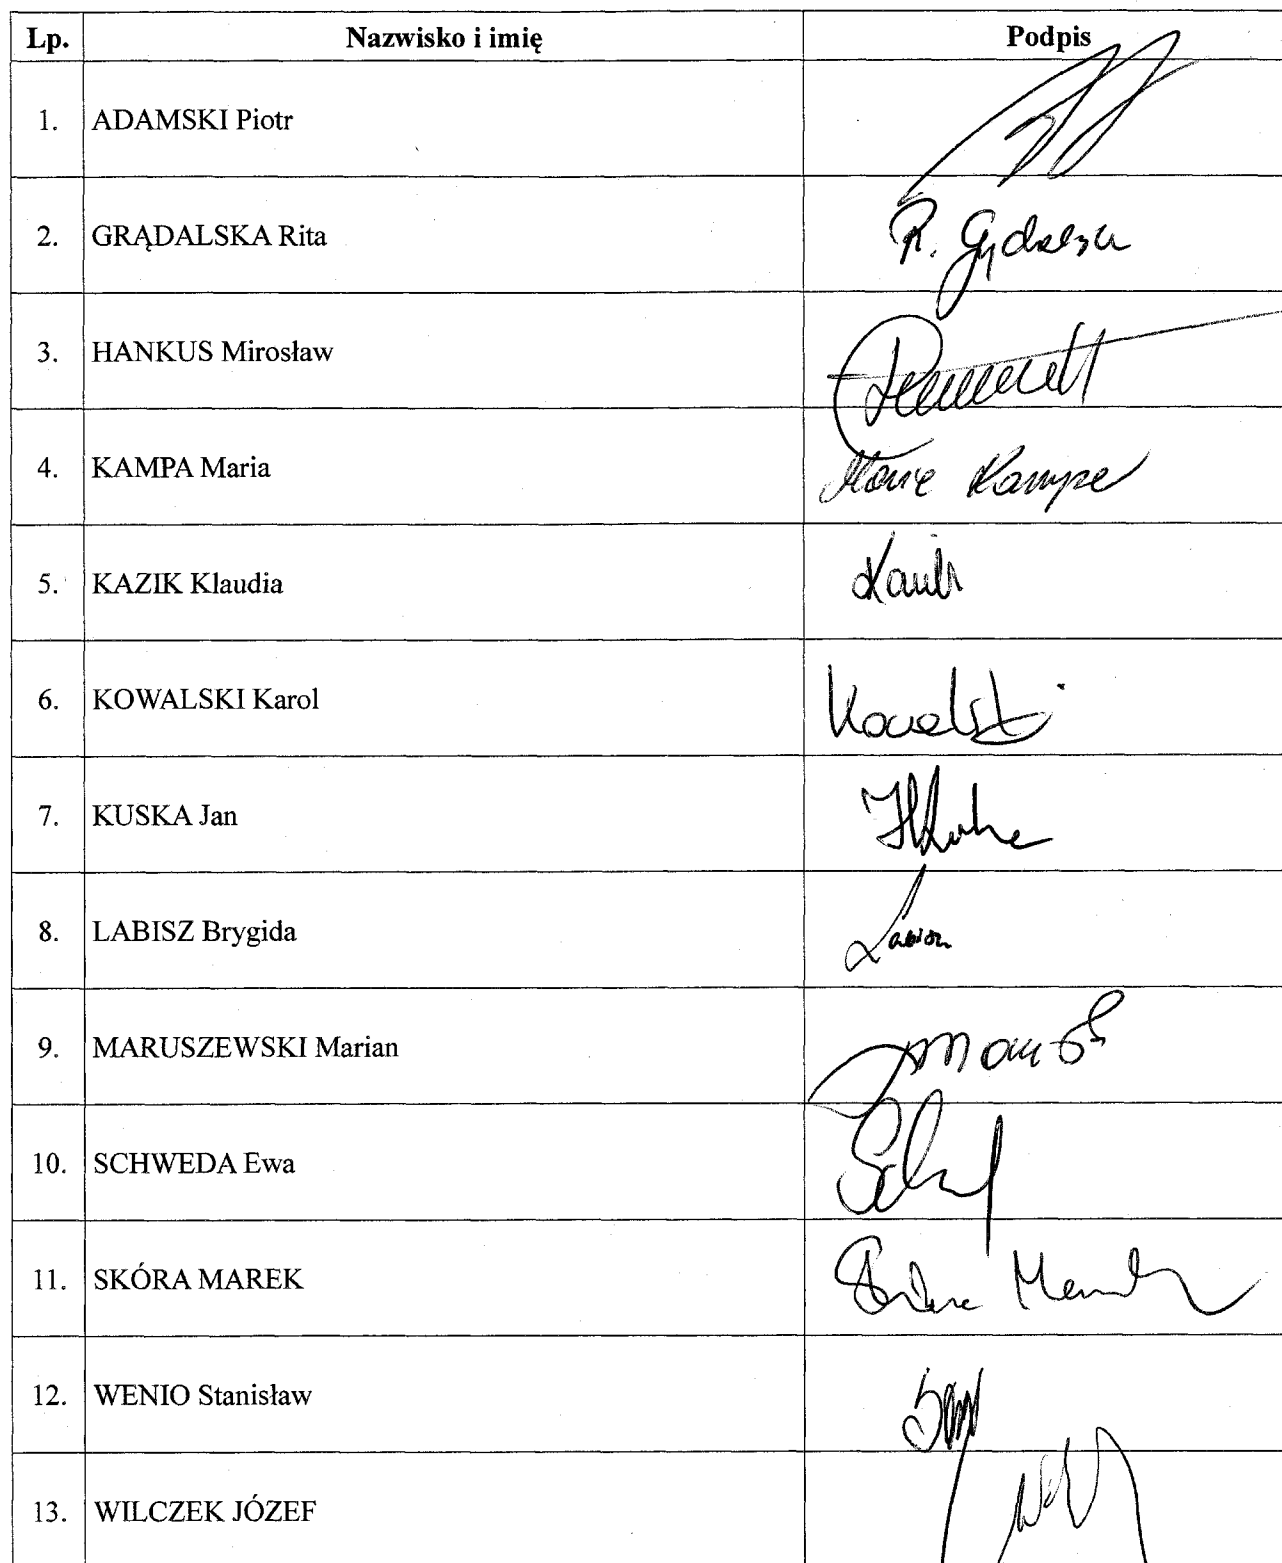 Lp. Nazwisko i imię Podpis
1. ADAMSKI Piotr
2. GRĄDALSKA Rita R.
3. HANKUS Mirosław
4. KAMPA Maria Maria Kampa
5. KAZIK Klaudia
6. KOWALSKI Karol Kowalski
7. KUSKA Jan
8. LABISZ Brygida Labisz
9. MARUSZEWSKI Marian
10. SCHWEDA Ewa
11. SKÓRA MAREK
12. WENIO Stanisław
13. WILCZEK JÓZEF